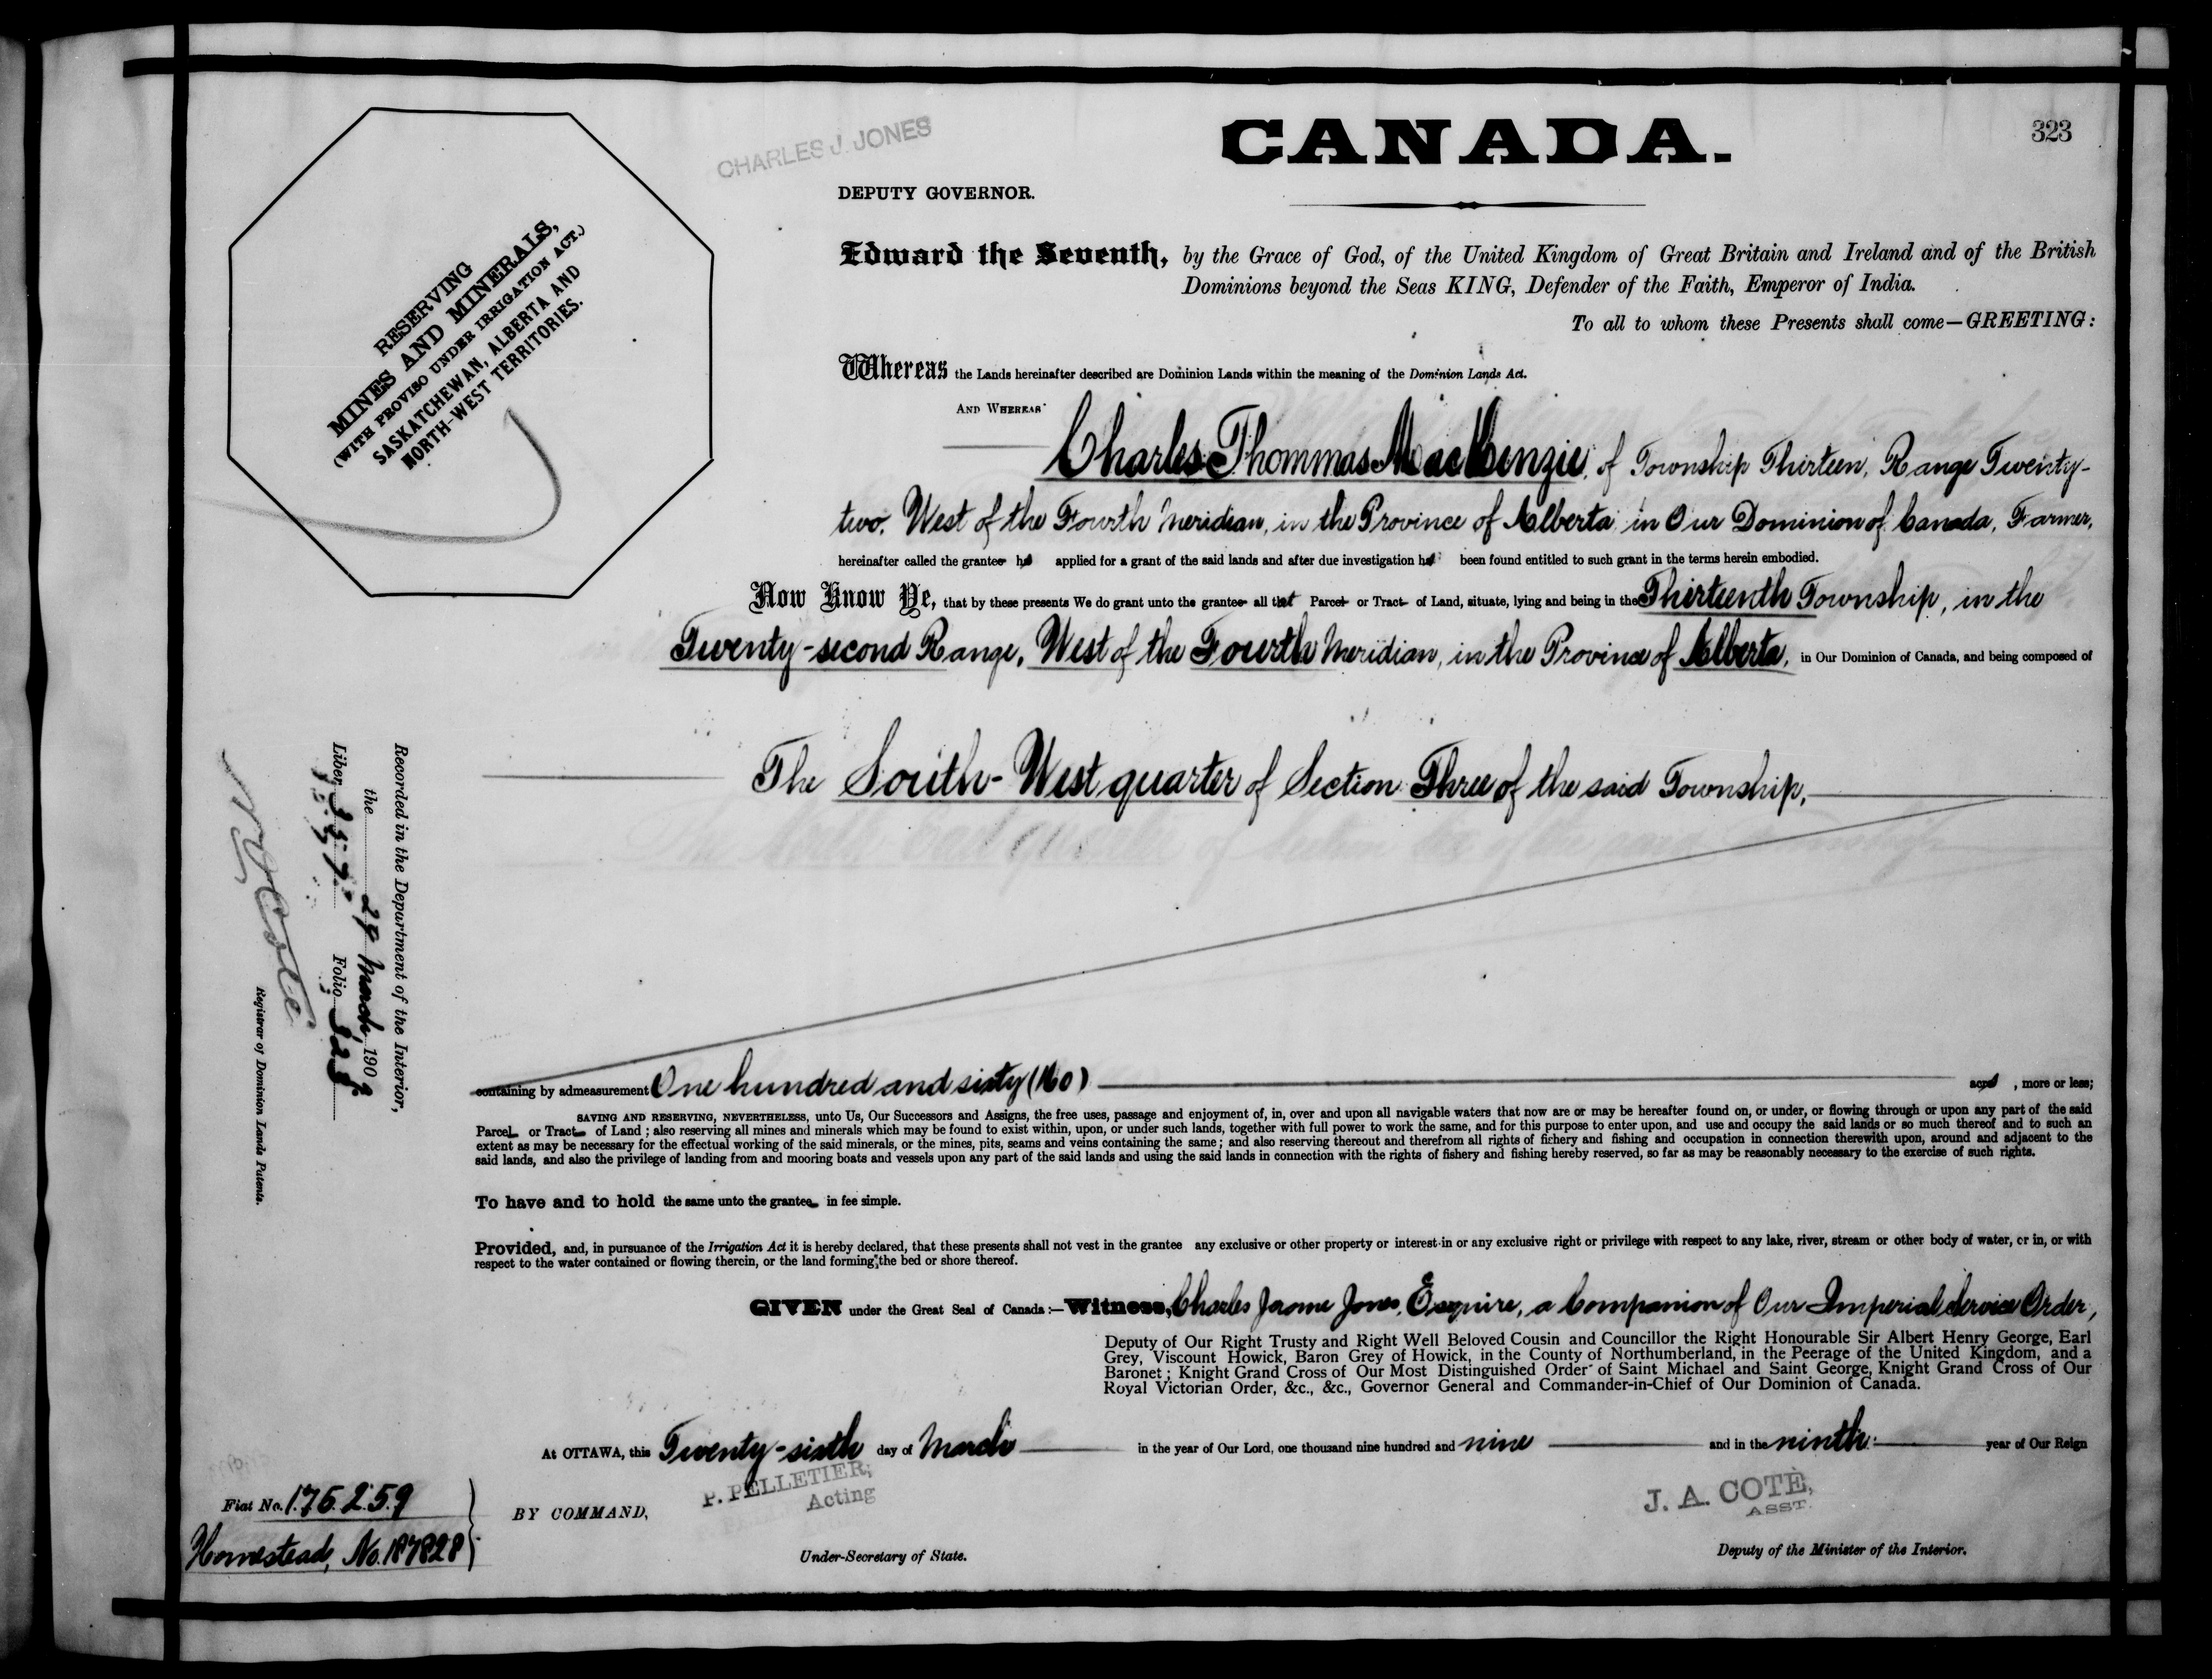 323
CHARLES J. JONES
CANADA.
DEPUTY GOVERNOR.
RESERVING
MINES AND MINERALS,
(WITH PROVISO UNDER IRRIGATION ACT.)
SASKATCHEWAN, ALBERTA AND
NORTH-WEST TERRITORIES.
Edward the Seventh, by the Grace of God, of the United Kingdom of Great Britain and Ireland and of the British
Dominions beyond the Seas KING, Defender of the Faith, Emperor of India.
To all to whom these Presents shall come—GREETING:
Whereas the Lands hereinafter described are Dominion Lands within the meaning of the Dominion Lands Act.
AND WHEREAS
Charles Thommas MacKenzie, of Township Thirteen, Range Twenty-
two, West of the Fourth Meridian, in the Province of Alberta in Our Dominion of Canada, Farmer,
hereinafter called the grantee has applied for a grant of the said lands and after due investigation has been found entitled to such grant in the terms herein embodied.
Now Know Ye, that by these presents We do grant unto the grantee all that Parcel or Tract of Land, situate, lying and being in the Thirteenth Township, in the
Twenty-second Range, West of the Fourth Meridian, in the Province of Alberta, in Our Dominion of Canada, and being composed of
The South-West quarter of Section Three of the said Township,
Recorded in the Department of the Interior,
the 29 March, 1909
Liber Folio 323
N O Coté
Registrar of Dominion Lands Patents.
containing by admeasurement One hundred and sixty (160) acres, more or less;
SAVING AND RESERVING, NEVERTHELESS, unto Us, Our Successors and Assigns, the free uses, passage and enjoyment of, in, over and upon all navigable waters that now are or may be hereafter found on, or under, or flowing through or upon any part of the said
Parcel or Tract of Land; also reserving all mines and minerals which may be found to exist within, upon, or under such lands, together with full power to work the same, and for this purpose to enter upon, and use and occupy the said lands or so much thereof and to such an
extent as may be necessary for the effectual working of the said minerals, or the mines, pits, seams and veins containing the same; and also reserving thereout and therefrom all rights of fichery and fishing and occupation in connection therewith upon, around and adjacent to the
said lands, and also the privilege of landing from and mooring boats and vessels upon any part of the said lands and using the said lands in connection with the rights of fishery and fishing hereby reserved, so far as may be reasonably necessary to the exercise of such rights.
To have and to hold the same unto the grantee in fee simple.
Provided, and, in pursuance of the Irrigation Act it is hereby declared, that these presents shall not vest in the grantee any exclusive or other property or interest in or any exclusive right or privilege with respect to any lake, river, stream or other body of water, or in, or with
respect to the water contained or flowing therein, or the land forming the bed or shore thereof.
GIVEN under the Great Seal of Canada:—Witness, Charles Jerome Jones, Esquire, a Companion of Our Imperial Service Order,
Deputy of Our Right Trusty and Right Well Beloved Cousin and Councillor the Right Honourable Sir Albert Henry George, Earl
Grey, Viscount Howick, Baron Grey of Howick, in the County of Northumberland, in the Peerage of the United Kingdom, and a
Baronet; Knight Grand Cross of Our Most Distinguished Order of Saint Michael and Saint George, Knight Grand Cross of Our
Royal Victorian Order, &c., &c., Governor General and Commander-in-Chief of Our Dominion of Canada.
At OTTAWA, this Twenty-sixth day of March in the year of Our Lord, one thousand nine hundred and nine and in the ninth year of Our Reign
Fiat No. 176259
Homestead, No. 187828
BY COMMAND,
P. PELLETIER,
Acting
Under-Secretary of State.
J. A. COTÉ,
ASST.
Deputy of the Minister of the Interior.